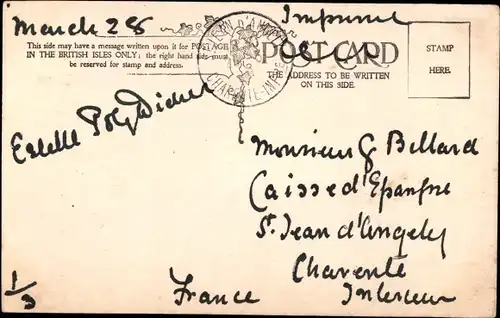 March 28
Imprimé
This side may have a message written upon it for POSTAGE
IN THE BRITISH ISLES ONLY; the right hand side must
be reserved for stamp and address.
POST CARD
THE ADDRESS TO BE WRITTEN
ON THIS SIDE.
STAMP
HERE.
CHARENTE-INF
Estelle
Monsieur G Billard
Caisse d'Epargne
St Jean d'Angely
Charente
Inferieur
France
1/3